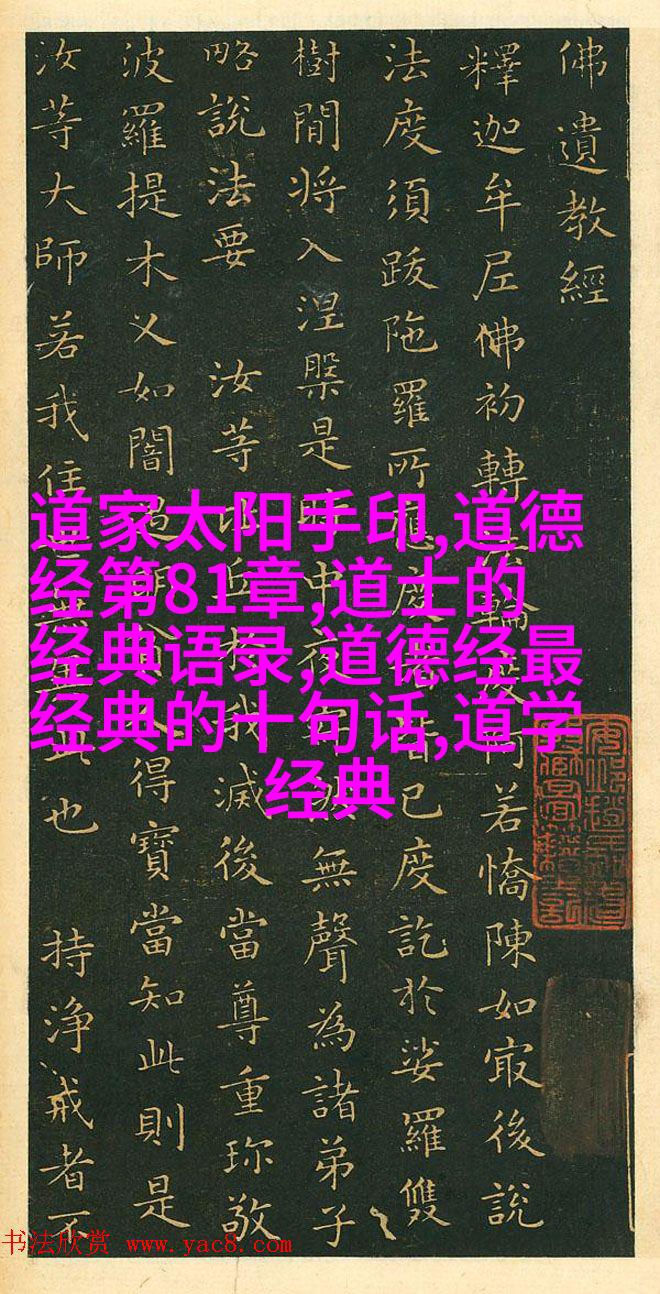 佛遺教經
釋迦牟尼佛初轉輪度阿若憍陳如冣後說
法度須跋陁羅所應度者皆已度訖於娑羅雙
樹間將入涅槃是時中夜寂然無聲為諸弟子
略說法要 汝等比丘於我滅後當尊重珎敬
波羅提木叉如闇遇明貧人得寶當知此則是
汝等大師若我住世無異此也 持淨戒者不
道家太阳手印,道德
经第81章,道士的
经典语录,道德经最
经典的十句话,道学
经典
书法欣赏 www.yac8.com